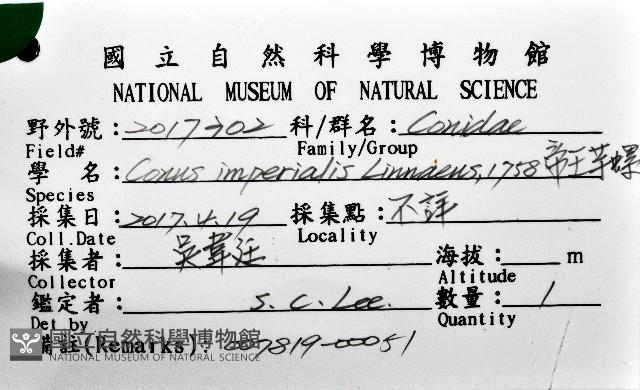 國立自然科學博物館
NATIONAL MUSEUM OF NATURAL SCIENCE
野外號: 科/群名: Conidae
Field# Family/Group
學 名: Conus imperialis Linnaeus, 1758 帝王芋螺
Species
採集日: 2017.4.19 採集點: 不詳
Coll.Date Locality
採集者: 吳韋廷 海拔: m
Collector Altitude
鑑定者: S. C. Lee. 數量: 1
Det by Quantity
備註(Remarks): 007819-00051
國立自然科學博物館
NATIONAL MUSEUM OF NATURAL SCIENCE